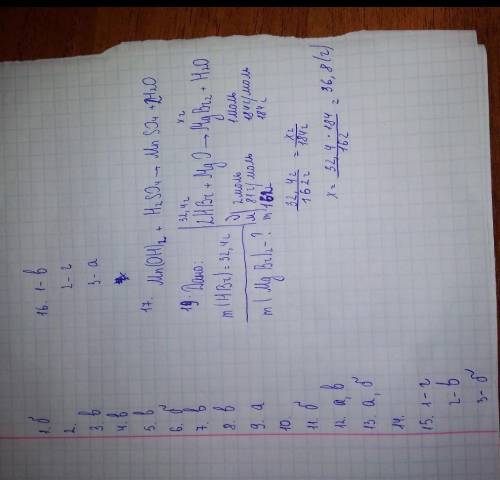 1. б
2.
3. в
4. в
5. в
6. б
7. в
8. в
9. а
10.
11. б
12. а, в
13. а, б
14.
15. 1 - г
2 - в
3 - б
16. 1 - в
2 - г
3 - а
17. Mn(OH)₂ + H₂SO₄ → MnSO₄ + 2H₂O
19. Дано:
m(HBr) = 32,4г
m(MgBr)₂ - ?
32,4г xг
2HBr + MgO → MgBr₂ + H₂O
ν 2моль 1моль
M 81г/моль 184г/моль
m 162г 184г
32,4г/162г = xг/184г
x = 32,4 · 184/162 = 36,8(г)